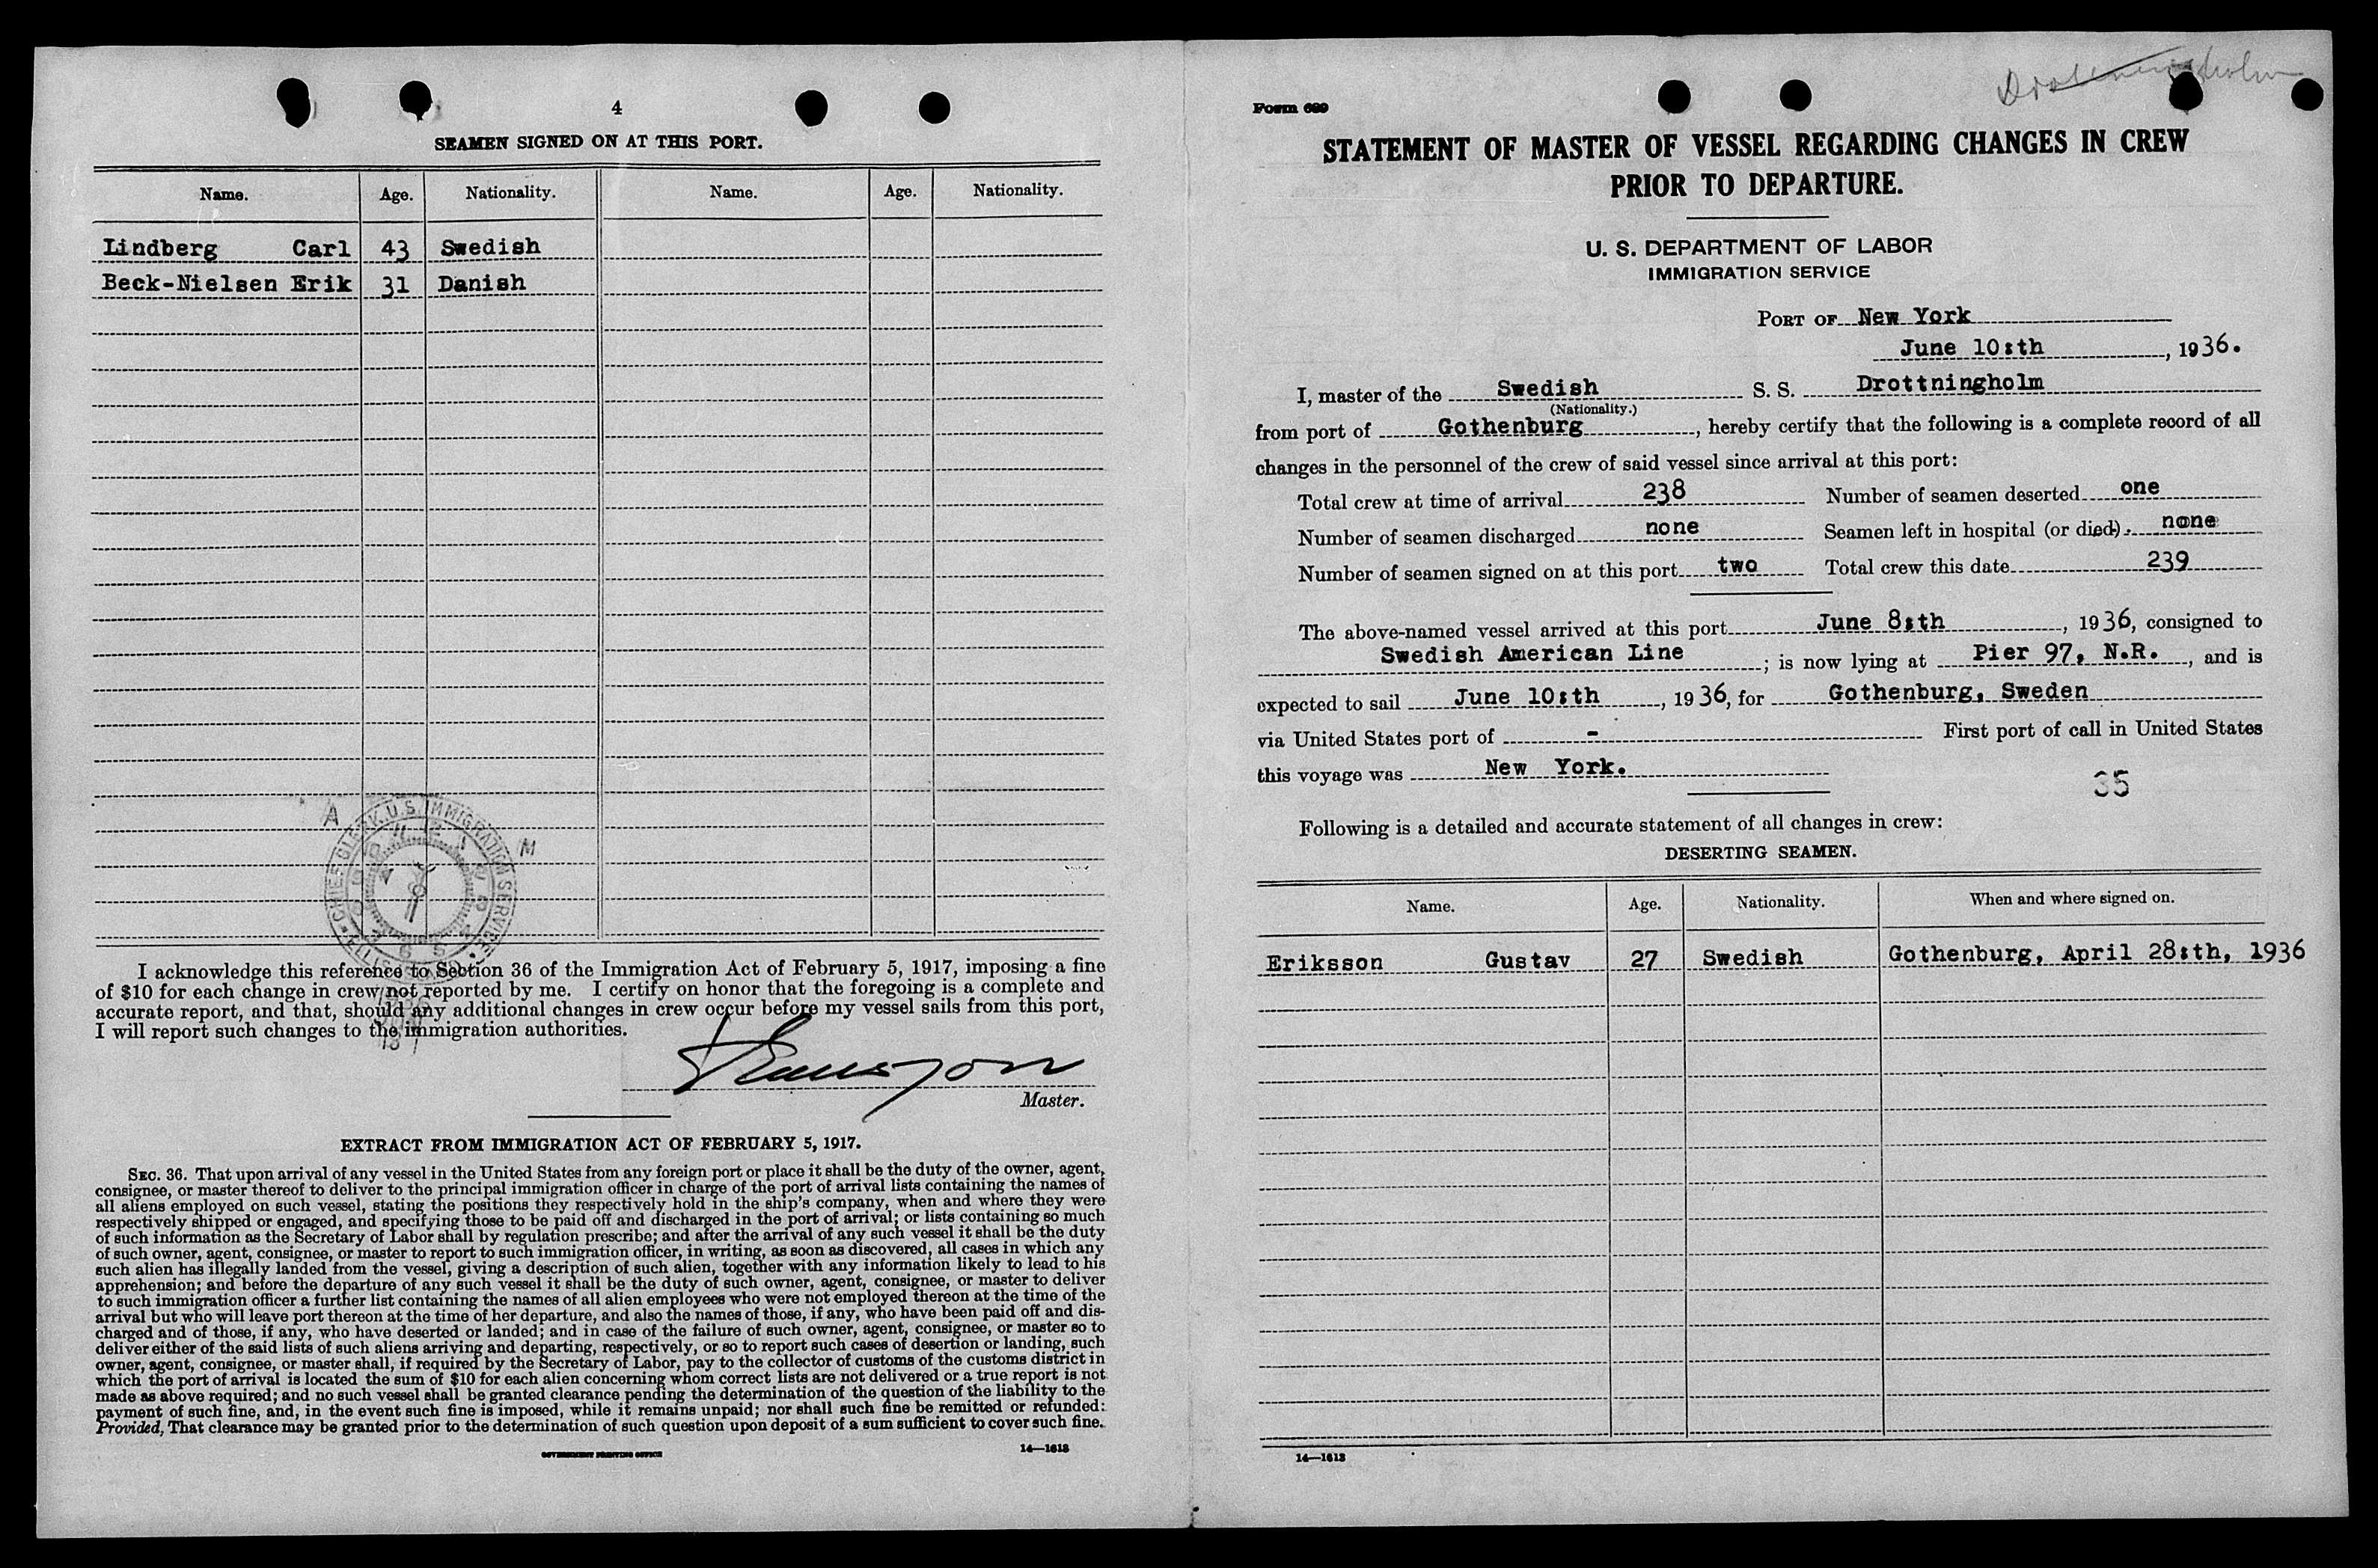 4
SEAMEN SIGNED ON AT THIS PORT.
Name. Age. Nationality. Name. Age. Nationality.
Lindberg Carl 43 Swedish
Beck-Nielsen Erik 31 Danish
CHIEF CLERK, U.S. IMMIGRATION SERVICE
A M
I acknowledge this reference to Section 36 of the Immigration Act of February 5, 1917, imposing a fine
of $10 for each change in crew not reported by me. I certify on honor that the foregoing is a complete and
accurate report, and that, should any additional changes in crew occur before my vessel sails from this port,
I will report such changes to the immigration authorities.
Master.
EXTRACT FROM IMMIGRATION ACT OF FEBRUARY 5, 1917.
SEC. 36. That upon arrival of any vessel in the United States from any foreign port or place it shall be the duty of the owner, agent,
consignee, or master thereof to deliver to the principal immigration officer in charge of the port of arrival lists containing the names of
all aliens employed on such vessel, stating the positions they respectively hold in the ship's company, when and where they were
respectively shipped or engaged, and specifying those to be paid off and discharged in the port of arrival; or lists containing so much
of such information as the Secretary of Labor shall by regulation prescribe; and after the arrival of any such vessel it shall be the duty
of such owner, agent, consignee, or master to report to such immigration officer, in writing, as soon as discovered, all cases in which any
such alien has illegally landed from the vessel, giving a description of such alien, together with any information likely to lead to his
apprehension; and before the departure of any such vessel it shall be the duty of such owner, agent, consignee, or master to deliver
to such immigration officer a further list containing the names of all alien employees who were not employed thereon at the time of the
arrival but who will leave port thereon at the time of her departure, and also the names of those, if any, who have been paid off and dis-
charged and of those, if any, who have deserted or landed; and in case of the failure of such owner, agent, consignee, or master so to
deliver either of the said lists of such aliens arriving and departing, respectively, or so to report such cases of desertion or landing, such
owner, agent, consignee, or master shall, if required by the Secretary of Labor, pay to the collector of customs of the customs district in
which the port of arrival is located the sum of $10 for each alien concerning whom correct lists are not delivered or a true report is not
made as above required; and no such vessel shall be granted clearance pending the determination of the question of the liability to the
payment of such fine, and, in the event such fine is imposed, while it remains unpaid; nor shall such fine be remitted or refunded:
Provided, That clearance may be granted prior to the determination of such question upon deposit of a sum sufficient to cover such fine.
GOVERNMENT PRINTING OFFICE 14—1613
Drottningholm
Form 689
STATEMENT OF MASTER OF VESSEL REGARDING CHANGES IN CREW
PRIOR TO DEPARTURE.
U. S. DEPARTMENT OF LABOR
IMMIGRATION SERVICE
PORT OF New York
June 10:th, 1936.
I, master of the Swedish S. S. Drottningholm
(Nationality.)
from port of Gothenburg, hereby certify that the following is a complete record of all
changes in the personnel of the crew of said vessel since arrival at this port:
Total crew at time of arrival 238 Number of seamen deserted one
Number of seamen discharged none Seamen left in hospital (or died) none
Number of seamen signed on at this port two Total crew this date 239
The above-named vessel arrived at this port June 8:th, 1936, consigned to
Swedish American Line; is now lying at Pier 97, N.R., and is
expected to sail June 10:th, 1936, for Gothenburg, Sweden
via United States port of - First port of call in United States
this voyage was New York.
35
Following is a detailed and accurate statement of all changes in crew:
DESERTING SEAMEN.
Name. Age. Nationality. When and where signed on.
Eriksson Gustav 27 Swedish Gothenburg, April 28:th, 1936
14—1613